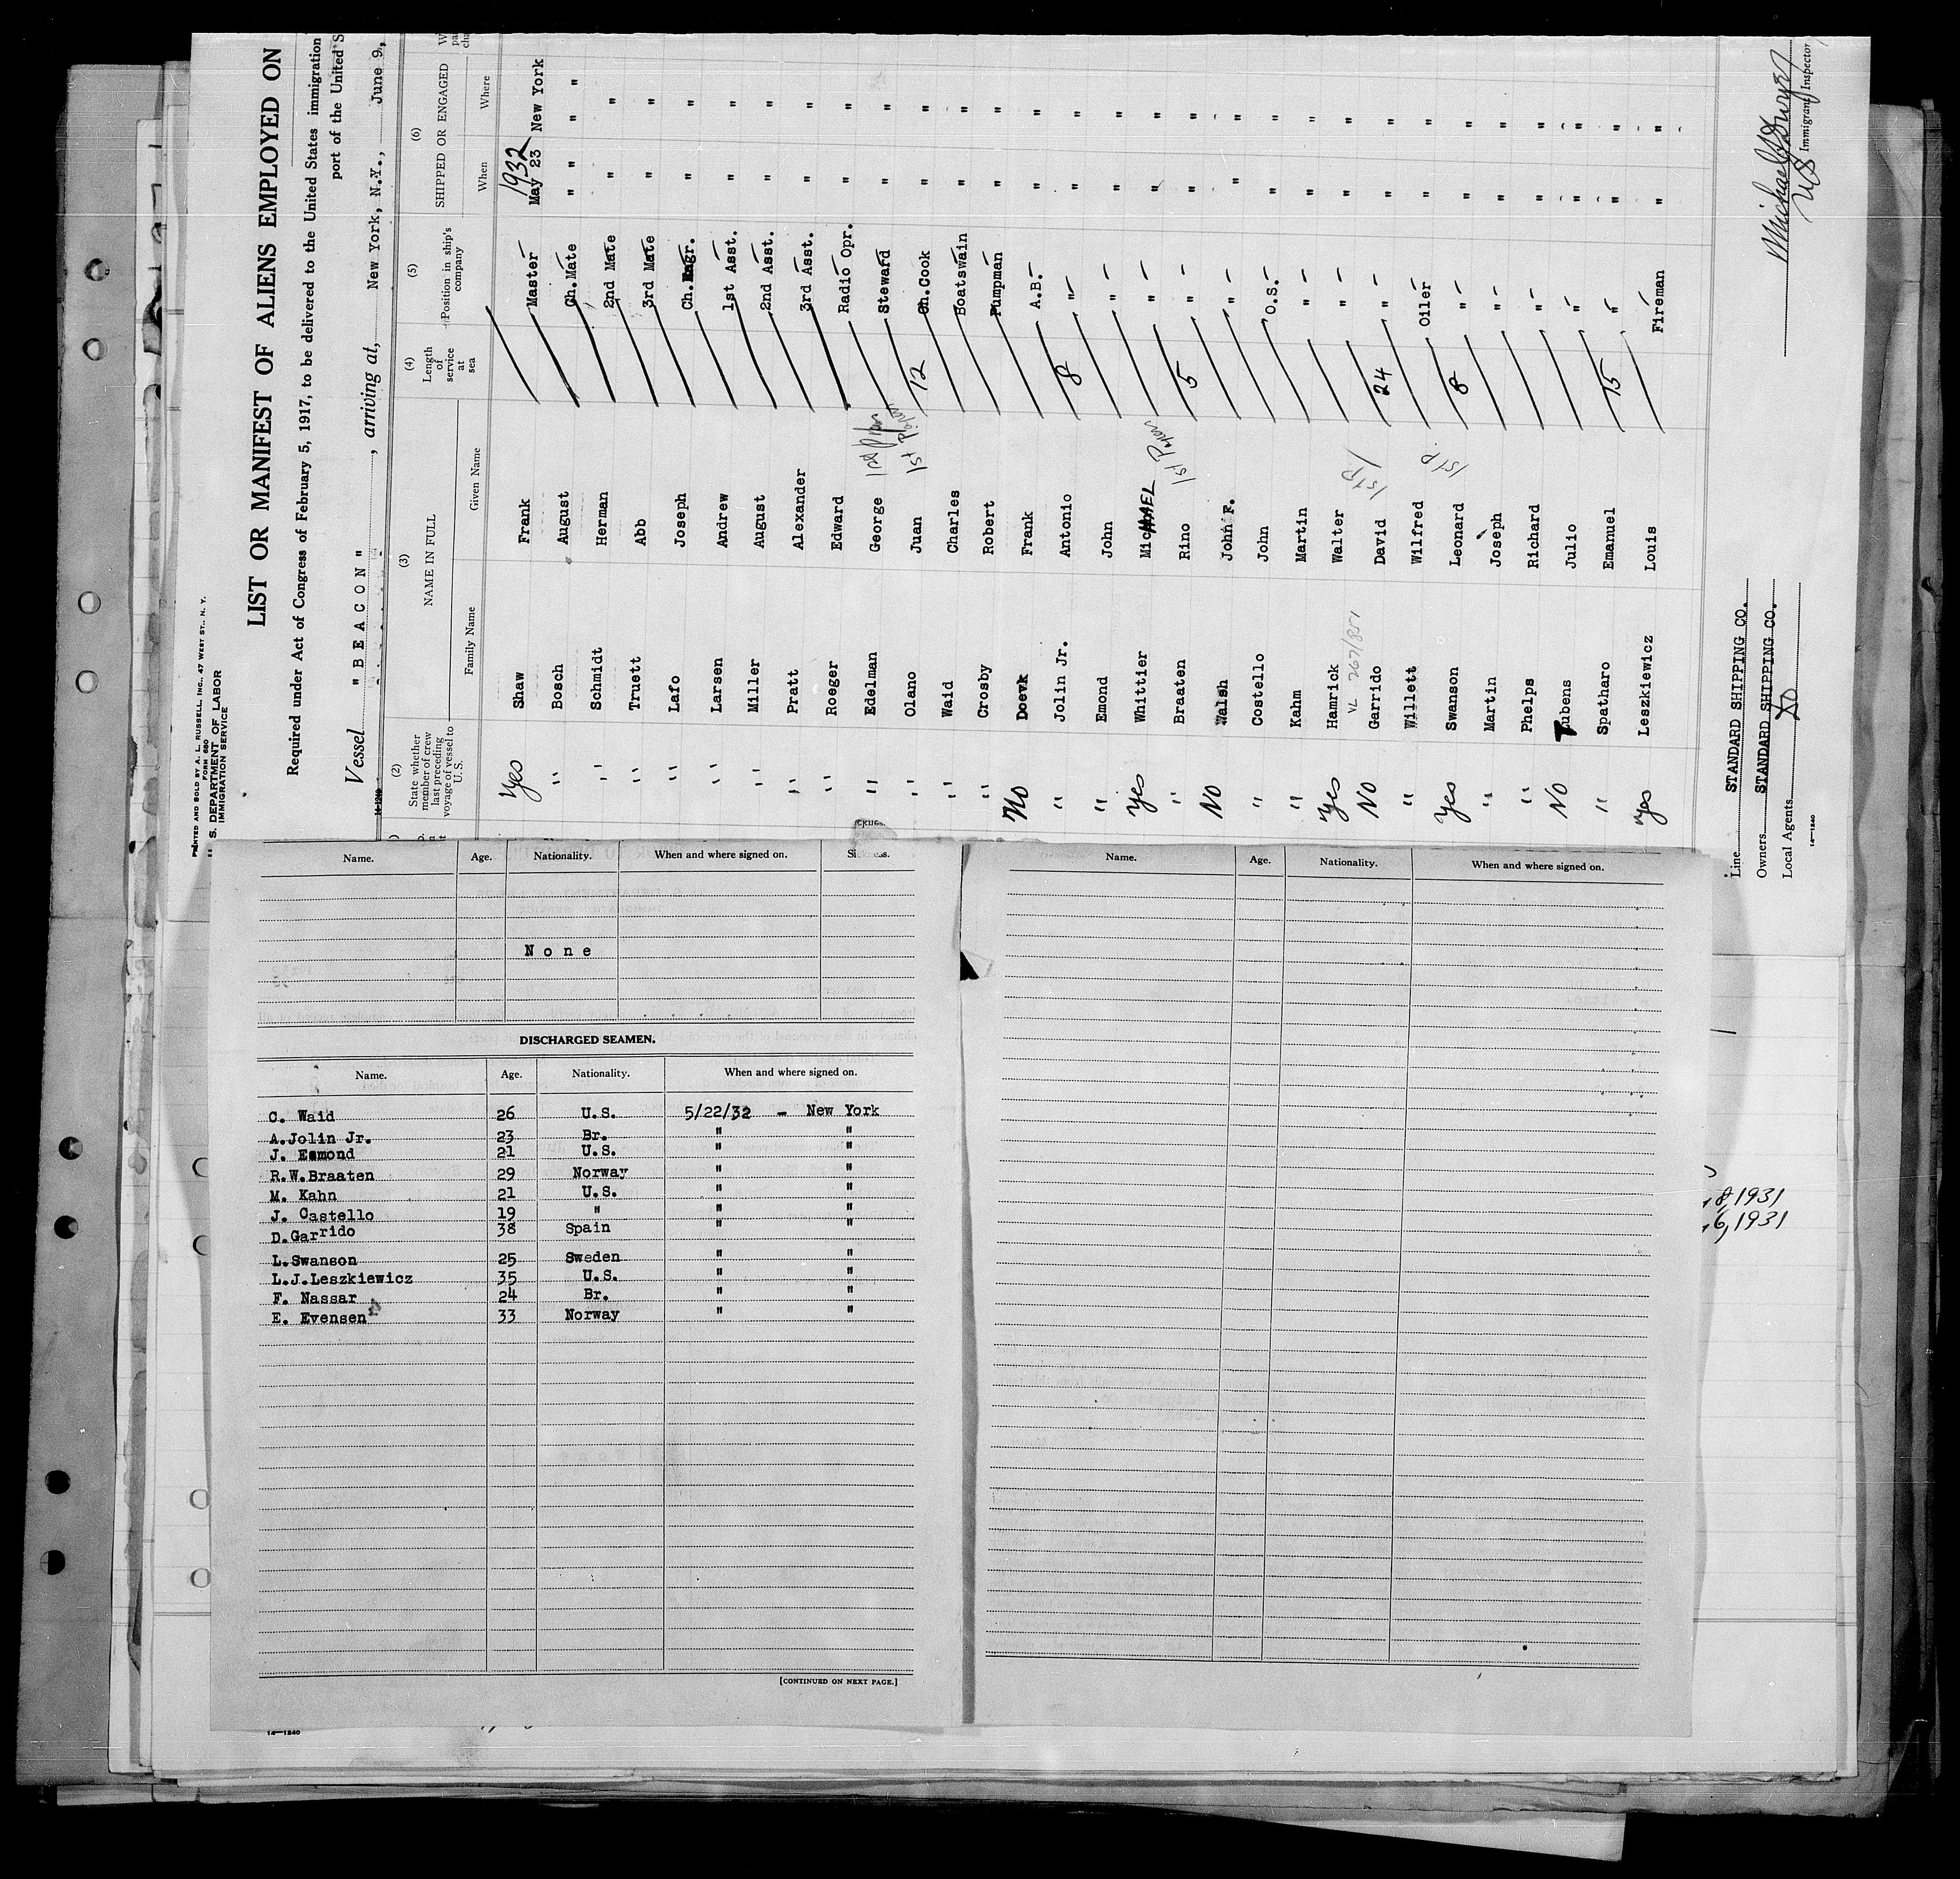 PRINTED AND SOLD BY A. L. RUSSELL, INC., 47 WEST ST., N. Y.
FORM 680
S. DEPARTMENT OF LABOR
IMMIGRATION SERVICE
LIST OR MANIFEST OF ALIENS EMPLOYED ON
Required under Act of Congress of February 5, 1917, to be delivered to the United States immigration
port of the United S
Vessel "BEACON", arriving at, New York, N.Y., June 9,
14-1240
(2) (3) (4) (5) (6)
State whether member of crew last preceding voyage of vessel to U.S. NAME IN FULL Length of service at sea Position in ship's company SHIPPED OR ENGAGED
Family Name Given Name When Where
1932
Yes Shaw Frank Master May 23 New York
" Bosch August Ch.Mate " " " "
" Schmidt Herman 2nd Mate " "
" Truett Abb 3rd Mate " "
" Lafo Joseph Ch.Engr. " "
" Larsen Andrew 1st Asst. " "
" Miller August 2nd Asst. " "
" Pratt Alexander 3rd Asst. " "
" Roeger Edward Radio Opr. " "
" Edelman George 1st Paper Steward " "
" Olano Juan 1st Paper 12 Ch.Cook " "
" Waid Charles Boatswain " "
" Crosby Robert Pumpman " "
No Doevk Frank A.B. " "
" Jolin Jr. Antonio 8 " " "
" Emond John " " "
Yes Whittier MicHAEL " " "
" Braaten Rino 1st Paper 5 " " "
No Walsh John F. " " "
" Costello John O.S. " "
" Kahm Martin " " "
Yes Hamrick Walter " " "
VL 267/851
No Garrido David 1st P 24 " " "
" Willett Wilfred Oiler " "
Yes Swanson Leonard 1st P 8 " " "
" Martin Joseph " " "
" Phelps Richard " " "
No Tubens Julio " " "
" Spatharo Emanuel 15 " " "
Yes Leszkiewicz Louis Fireman " "
Line STANDARD SHIPPING CO.
Owners STANDARD SHIPPING CO.
Local Agents DO
14-1240
US Immigrant Inspector
Name. Age. Nationality. When and where signed on.
None
DISCHARGED SEAMEN.
Name. Age. Nationality. When and where signed on.
C. Waid 26 U.S. 5/22/32 - New York
A.Jolin Jr. 23 Br. " "
J. Esmond 21 U.S. " "
R.W.Braaten 29 Norway " "
M. Kahn 21 U.S. " "
J. Castello 19 " " "
D.Garrido 38 Spain " "
L.Swanson 25 Sweden " "
L.J.Leszkiewicz 35 U.S. " "
F. Nassar 24 Br. " "
E. Evensen 33 Norway " "
[CONTINUED ON NEXT PAGE.]
14-1240
Name. Age. Nationality. When and where signed on.
8, 1931
6, 1931